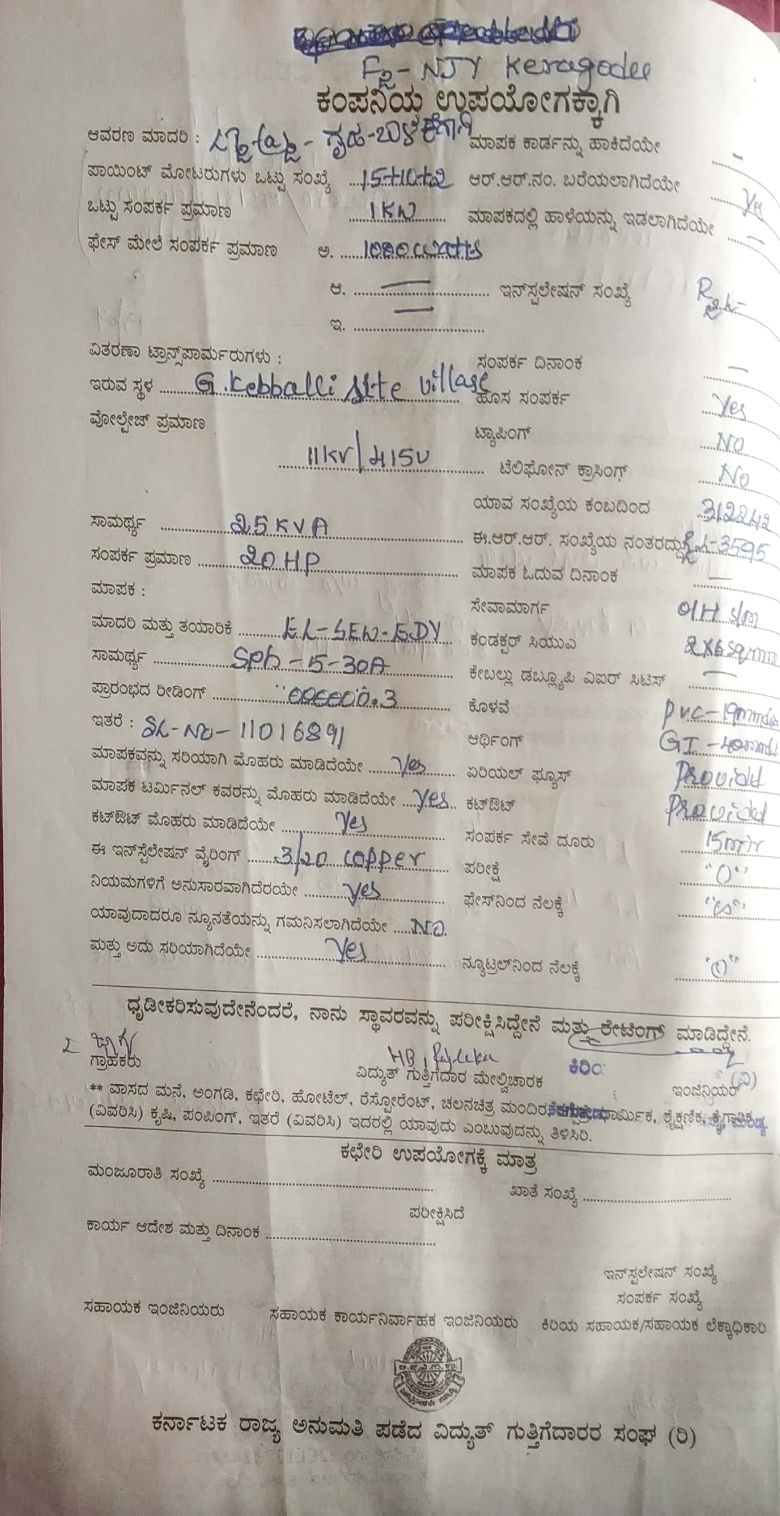 F2-NJY Keragodu
ಕಂಪನಿಯ ಉಪಯೋಗಕ್ಕಾಗಿ
ಆವರಣ ಮಾದರಿ : ಗೃಹ-ಬಳಕೆಗಾಗಿ ಮಾಪಕ ಕಾರ್ಡನ್ನು ಹಾಕಿದೆಯೇ –
ಪಾಯಿಂಟ್ ಮೋಟರುಗಳು ಒಟ್ಟು ಸಂಖ್ಯೆ 15+10+2 ಆರ್.ಆರ್.ನಂ. ಬರೆಯಲಾಗಿದೆಯೇ Yes
ಒಟ್ಟು ಸಂಪರ್ಕ ಪ್ರಮಾಣ 1KW ಮಾಪಕದಲ್ಲಿ ಹಾಳೆಯನ್ನು ಇಡಲಾಗಿದೆಯೇ –
ಫೇಸ್ ಮೇಲೆ ಸಂಪರ್ಕ ಪ್ರಮಾಣ ಅ. 1000 watts
ಆ. — ಇನ್‌ಸ್ಟಲೇಷನ್ ಸಂಖ್ಯೆ
ಇ. —
ವಿತರಣಾ ಟ್ರಾನ್ಸ್‌ಪಾರ್ಮರುಗಳು : ಸಂಪರ್ಕ ದಿನಾಂಕ –
ಇರುವ ಸ್ಥಳ G.Kebballi site village ಹೊಸ ಸಂಪರ್ಕ Yes
ವೋಲ್ಟೇಜ್ ಪ್ರಮಾಣ ಟ್ಯಾಪಿಂಗ್ NO
11KV/415V ಟೆಲಿಫೋನ್ ಕ್ರಾಸಿಂಗ್ No
ಯಾವ ಸಂಖ್ಯೆಯ ಕಂಬದಿಂದ 312242
ಸಾಮರ್ಥ್ಯ 25KVA ಈ.ಆರ್.ಆರ್. ಸಂಖ್ಯೆಯ ನಂತರದ್ದು 3595
ಸಂಪರ್ಕ ಪ್ರಮಾಣ 20HP ಮಾಪಕ ಓದುವ ದಿನಾಂಕ –
ಮಾಪಕ : ಸೇವಾಮಾರ್ಗ O/H S/m
ಮಾದರಿ ಮತ್ತು ತಯಾರಿಕೆ ಕಂಡಕ್ಟರ್ ಸಿಯುವಿ 2X6 sqmm
ಸಾಮರ್ಥ್ಯ Sph-5-30A ಕೇಬಲ್ಲು ಡಬ್ಲ್ಯೂಪಿ ವಿಐರ್ ಸಿಟಿಸ್ –
ಪ್ರಾರಂಭದ ರೀಡಿಂಗ್ 000000.3 ಕೊಳವೆ PVC-19mmdia
ಇತರೆ : SL-NO-11016891 ಆರ್ಥಿಂಗ್ GI-40mmdi
ಮಾಪಕವನ್ನು ಸರಿಯಾಗಿ ಮೊಹರು ಮಾಡಿದೆಯೇ Yes ಏರಿಯಲ್ ಫ್ಯೂಸ್ Provided
ಮಾಪಕ ಟರ್ಮಿನಲ್ ಕವರನ್ನು ಮೊಹರು ಮಾಡಿದೆಯೇ Yes ಕಟ್ಔಟ್ Provided
ಕಟ್ಔಟ್ ಮೊಹರು ಮಾಡಿದೆಯೇ Yes ಸಂಪರ್ಕ ಸೇವೆ ದೂರು 15mtr
ಈ ಇನ್‌ಸ್ಟೆಲೇಷನ್ ವೈರಿಂಗ್ 3/20 copper ಪರೀಕ್ಷೆ "0"
ನಿಯಮಗಳಿಗೆ ಅನುಸಾರವಾಗಿದೆರಯೇ Yes ಫೇಸ್‌ನಿಂದ ನೆಲಕ್ಕೆ "∞"
ಯಾವುದಾದರೂ ನ್ಯೂನತೆಯನ್ನು ಗಮನಿಸಲಾಗಿದೆಯೇ NO
ಮತ್ತು ಅದು ಸರಿಯಾಗಿದೆಯೇ Yes ನ್ಯೂಟ್ರಲ್‌ನಿಂದ ನೆಲಕ್ಕೆ
ಧೃಡೀಕರಿಸುವುದೇನೆಂದರೆ, ನಾನು ಸ್ಥಾವರವನ್ನು ಪರೀಕ್ಷಿಸಿದ್ದೇನೆ ಮತ್ತು ರೇಟಿಂಗ್ ಮಾಡಿದ್ದೇನೆ.
ಗ್ರಾಹಕರು ವಿದ್ಯುತ್ ಗುತ್ತಿಗೆದಾರ ಮೇಲ್ವಿಚಾರಕ ಕಿರಿ ಇಂಜಿನಿಯರ್ (ವಿ)
** ವಾಸದ ಮನೆ, ಅಂಗಡಿ, ಕಛೇರಿ, ಹೋಟೆಲ್, ರೆಸ್ಟೋರೆಂಟ್, ಚಲನಚಿತ್ರ ಮಂದಿರ, ಧಾರ್ಮಿಕ, ಶೈಕ್ಷಣಿಕ, ಕೈಗಾರಿಕ
(ವಿವರಿಸಿ) ಕೃಷಿ, ಪಂಪಿಂಗ್, ಇತರೆ (ವಿವರಿಸಿ) ಇದರಲ್ಲಿ ಯಾವುದು ಎಂಬುವುದನ್ನು ತಿಳಿಸಿರಿ.
ಕಛೇರಿ ಉಪಯೋಗಕ್ಕೆ ಮಾತ್ರ
ಮಂಜೂರಾತಿ ಸಂಖ್ಯೆ ಖಾತೆ ಸಂಖ್ಯೆ
ಪರೀಕ್ಷಿಸಿದೆ
ಕಾರ್ಯ ಆದೇಶ ಮತ್ತು ದಿನಾಂಕ
ಇನ್‌ಸ್ಟಲೇಷನ್ ಸಂಖ್ಯೆ
ಸಂಪರ್ಕ ಸಂಖ್ಯೆ
ಸಹಾಯಕ ಇಂಜಿನಿಯರು ಸಹಾಯಕ ಕಾರ್ಯನಿರ್ವಾಹಕ ಇಂಜಿನಿಯರು ಕಿರಿಯ ಸಹಾಯಕ/ಸಹಾಯಕ ಲೆಕ್ಕಾಧಿಕಾರಿ
ಕರ್ನಾಟಕ ರಾಜ್ಯ ಅನುಮತಿ ಪಡೆದ ವಿದ್ಯುತ್ ಗುತ್ತಿಗೆದಾರರ ಸಂಘ (ರಿ)